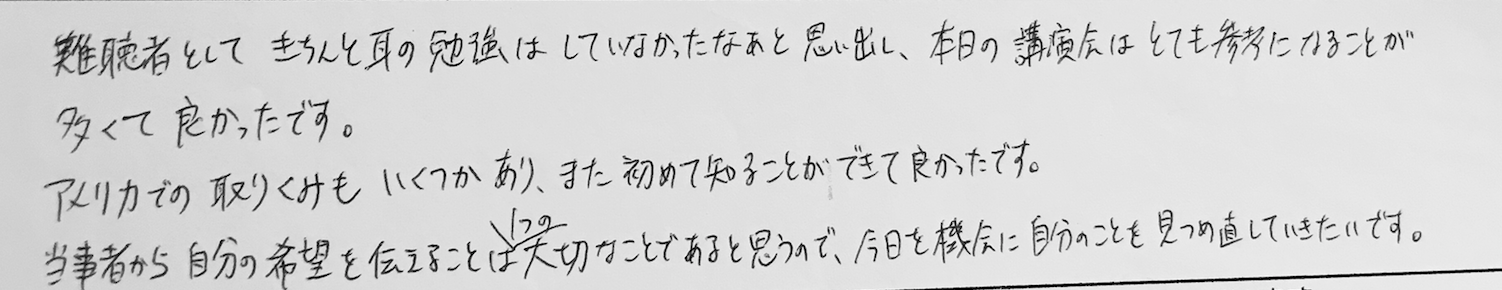 難聴者として きちんと耳の勉強はしていなかったなぁと思い出し、本日の講演会はとても参考になることが
多くて良かったです。
アメリカでの取りくみもいくつかあり、また初めて知ることができて良かったです。
当事者から自分の希望を伝えることは1つの大切なことであると思うので、今日を機会に自分のことを見つめ直していきたいです。